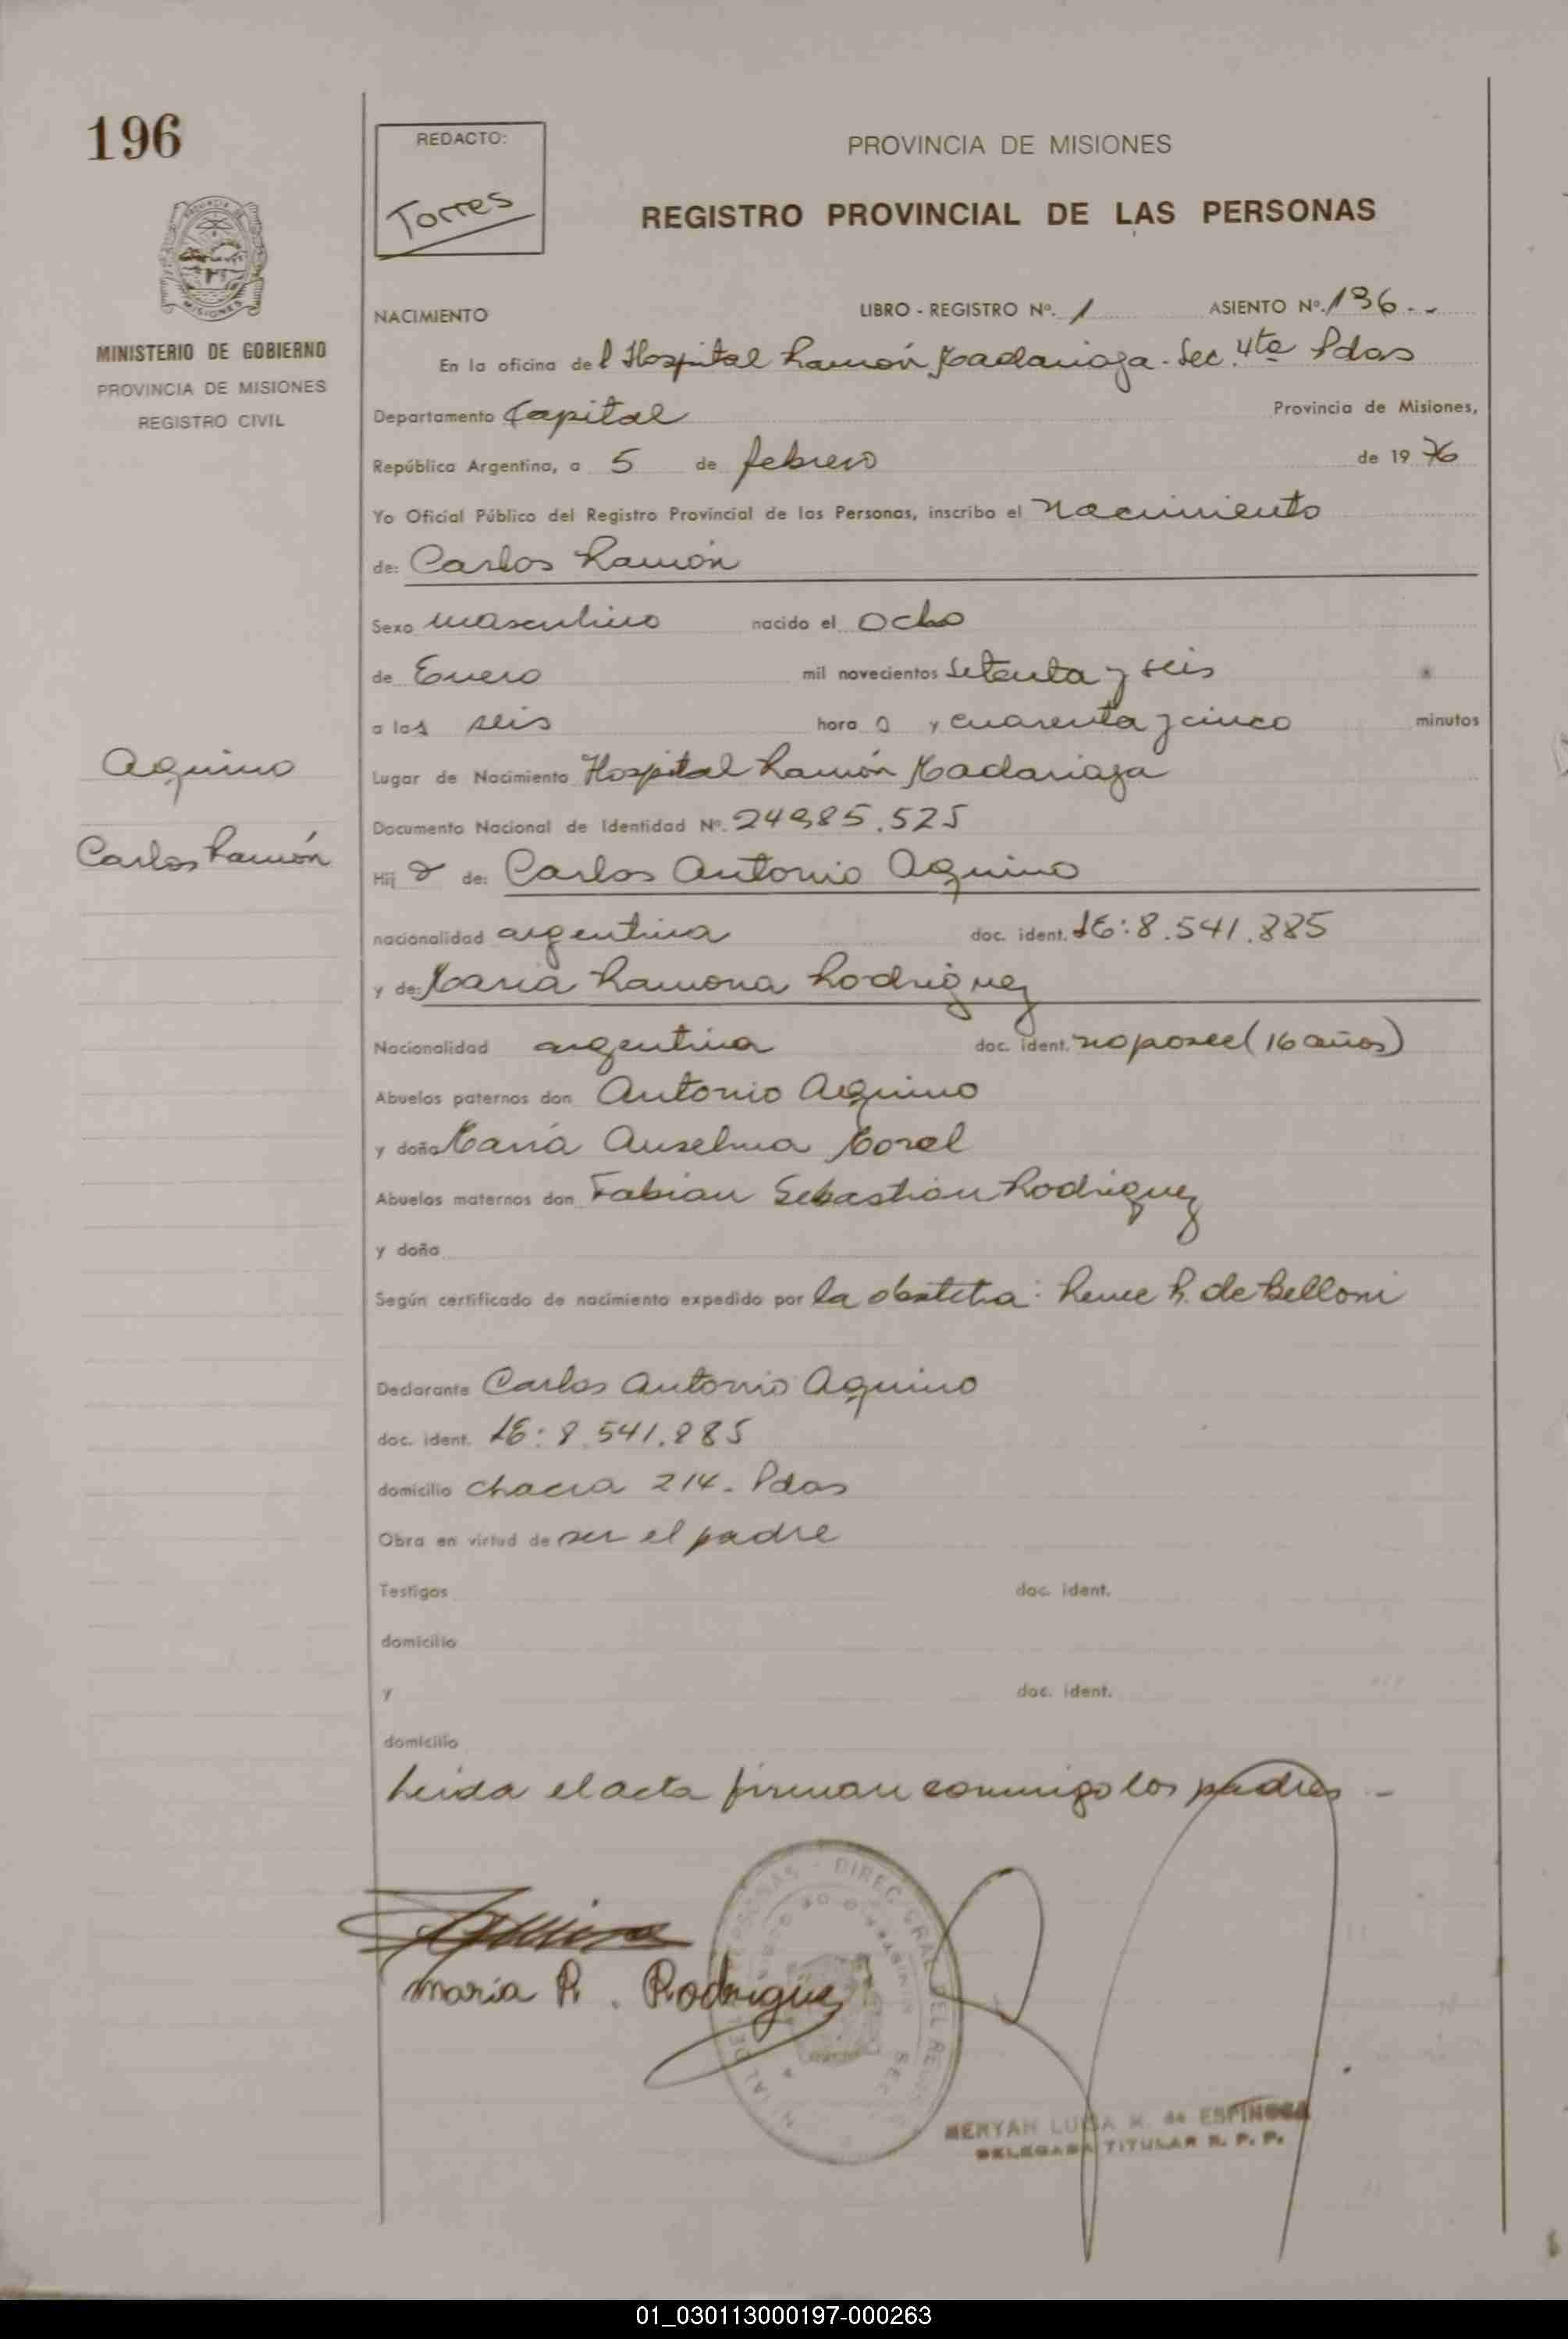 196
REDACTO:
Torres
PROVINCIA DE MISIONES
REGISTRO PROVINCIAL DE LAS PERSONAS
MINISTERIO DE GOBIERNO
PROVINCIA DE MISIONES
REGISTRO CIVIL
NACIMIENTO LIBRO - REGISTRO Nº. 1 ASIENTO Nº. 196 --
En la oficina del Hospital Ramón Madariaga - Sec. 4ta Pdas
Departamento Capital Provincia de Misiones,
República Argentina, a 5 de febrero de 1976
Yo Oficial Público del Registro Provincial de las Personas, inscribo el Nacimiento
de: Carlos Ramón
Sexo masculino nacido el ocho
de Enero mil novecientos setenta y seis
a las seis hora s y cuarenta y cinco minutos
Aquino
Lugar de Nacimiento Hospital Ramón Madariaga
Documento Nacional de Identidad Nº. 24.985.525
Carlos Ramón
Hijo de: Carlos Antonio Aquino
nacionalidad argentina doc. ident. LE: 8.541.885
y de: María Ramona Rodriguez
Nacionalidad argentina doc. ident. no posee (16 años)
Abuelos paternos don Antonio Aquino
y doña María Anselma Morel
Abuelos maternos don Fabian Sebastián Rodriguez
y doña
Según certificado de nacimiento expedido por la obstetra: Renee R. de Belloni
Declarante Carlos Antonio Aquino
doc. ident. LE: 8.541.885
domicilio chacra 214. Pdas
Obra en virtud de ser el padre
Testigos doc. ident.
domicilio
y doc. ident.
domicilio
Leida el acta firman conmigo los padres -
Maria R. Rodriguez
LUISA M. de ESPINOSA
DELEGADA TITULAR R. P. P.
01_030113000197-000263